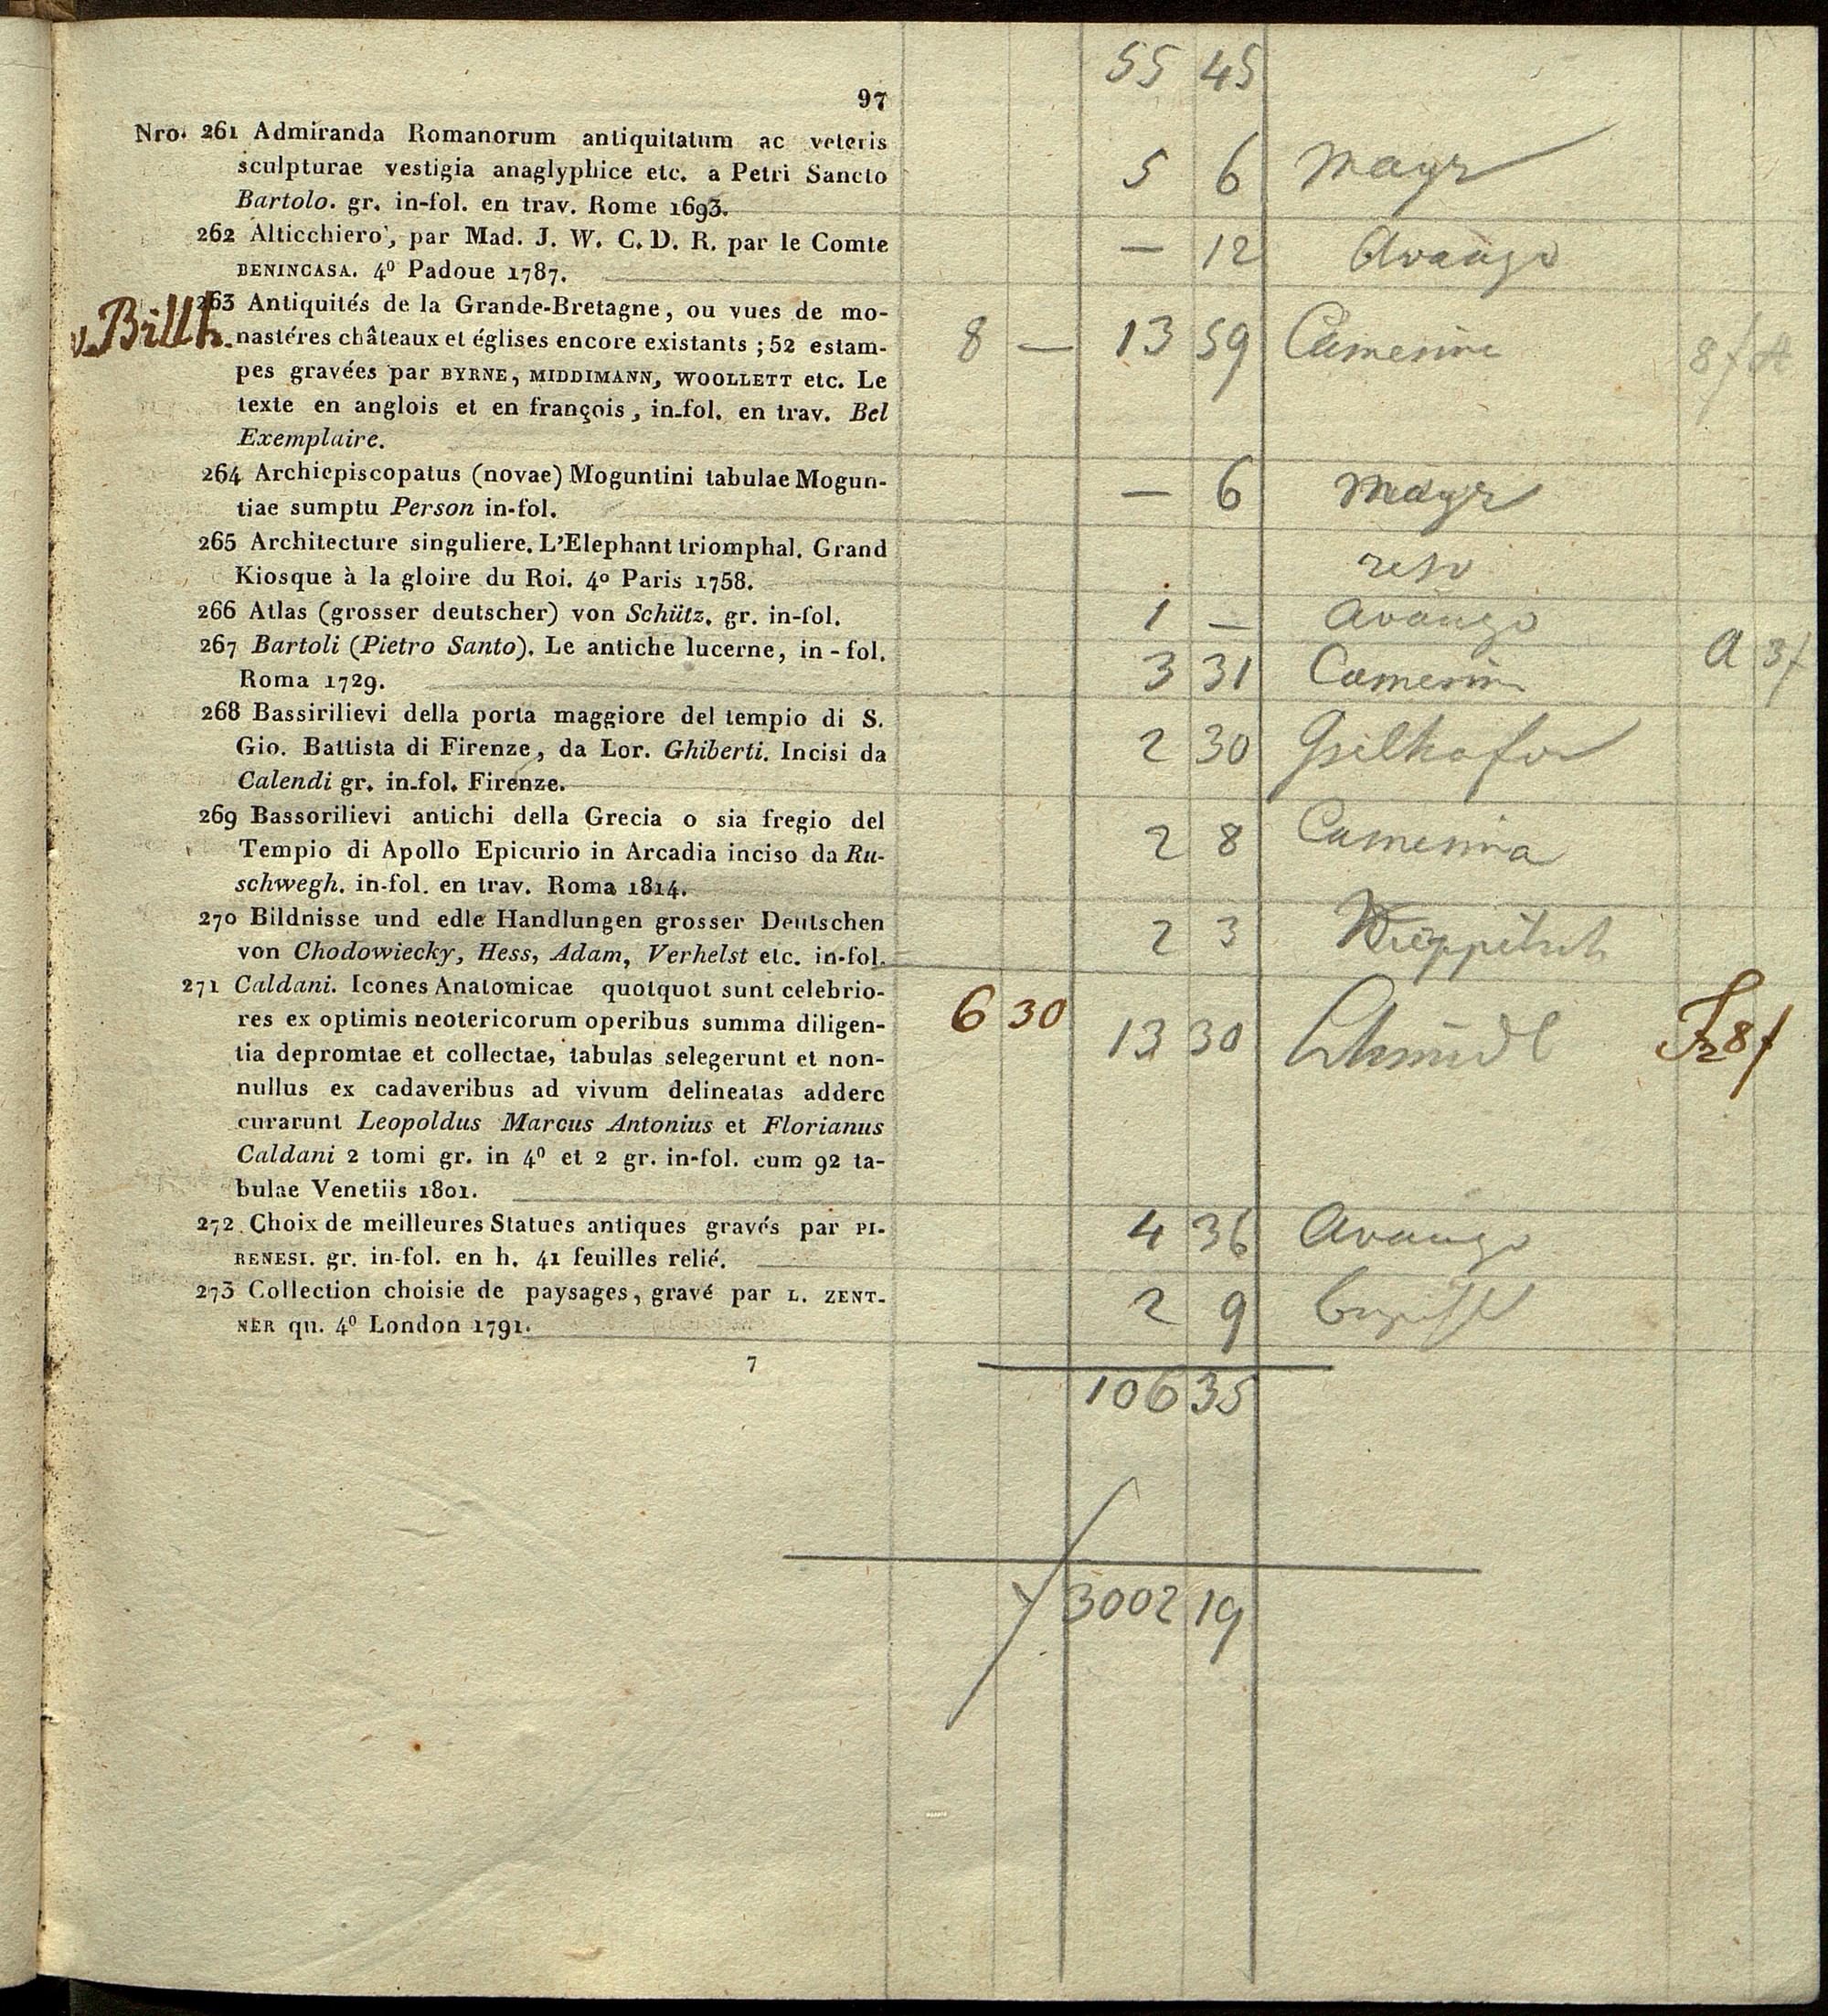 55 45
97
Nro. 261 Admiranda Romanorum antiquitatum ac veteris
sculpturae vestigia anaglyphice etc. a Petri Sancto
Bartolo. gr. in-fol. en trav. Rome 1693.
5 6 Mayr
262 Alticchiero, par Mad. J. W. C. D. R. par le Comte
BENINCASA. 4⁰ Padoue 1787.
— 12 Avango
263 Antiquités de la Grande-Bretagne, ou vues de mo-
v. Brllh.
nastéres châteaux et églises encore existants ; 52 estam-
8 — 13 59 8f
pes gravées par BYRNE, MIDDIMANN, WOOLLETT etc. Le
texte en anglois et en françois, in-fol. en trav. Bel
Exemplaire.
264 Archiepiscopatus (novae) Moguntini tabulae Mogun-
tiae sumptu Person in-fol.
— 6 Mayr
265 Architecture singuliere. L'Elephant triomphal. Grand
Kiosque à la gloire du Roi. 4⁰ Paris 1758.
266 Atlas (grosser deutscher) von Schütz. gr. in-fol.
1 — Avango
267 Bartoli (Pietro Santo). Le antiche lucerne, in-fol.
Roma 1729.
3 31 A 3f
268 Bassirilievi della porta maggiore del tempio di S.
Gio. Battista di Firenze, da Lor. Ghiberti. Incisi da
Calendi gr. in-fol. Firenze.
2 30 Gsellhofer
269 Bassorilievi antichi della Grecia o sia fregio del
Tempio di Apollo Epicurio in Arcadia inciso da Ru-
schwegh. in-fol. en trav. Roma 1814.
2 8 Camesina
270 Bildnisse und edle Handlungen grosser Deutschen
von Chodowiecky, Hess, Adam, Verhelst etc. in-fol.
2 3
271 Caldani. Icones Anatomicae quotquot sunt celebrio-
res ex optimis neotericorum operibus summa diligen-
6 30 13 30 Schmidl Fr 8f
tia depromtae et collectae, tabulas selegerunt et non-
nullus ex cadaveribus ad vivum delineatas addere
curarunt Leopoldus Marcus Antonius et Florianus
Caldani 2 tomi gr. in 4⁰ et 2 gr. in-fol. cum 92 ta-
bulae Venetiis 1801.
272 Choix de meilleures Statues antiques gravés par PI-
RENESI. gr. in-fol. en h. 41 feuilles relié.
4 36 Avango
273 Collection choisie de paysages, gravé par L. ZENT-
NER qu. 4⁰ London 1791.
2 9
7
106 35
3002 19